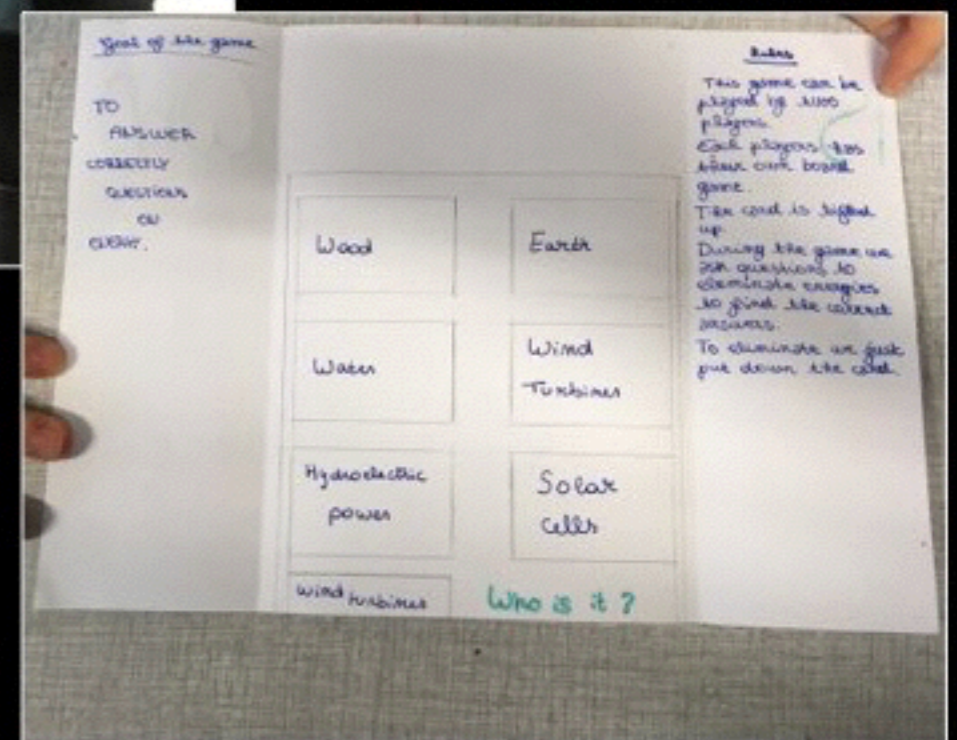 Goal of the game
TO
ANSWER
CORRECTLY
QUESTIONS
ON
ENERGY.
Wood
Earth
Water
Wind
Turbines
Hydroelectric
power
Solar
cells
wind turbines
Who is it ?
Rules
This game can be
played by two
players.
Each players has
their own board
game.
The card is lifted
up.
During the game we
ask questions to
eleminate energies
to find the correct
answers.
To eluminate we just
put down the card.